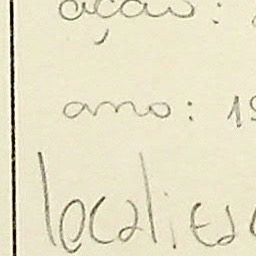 ação:
ano: 19
localiza